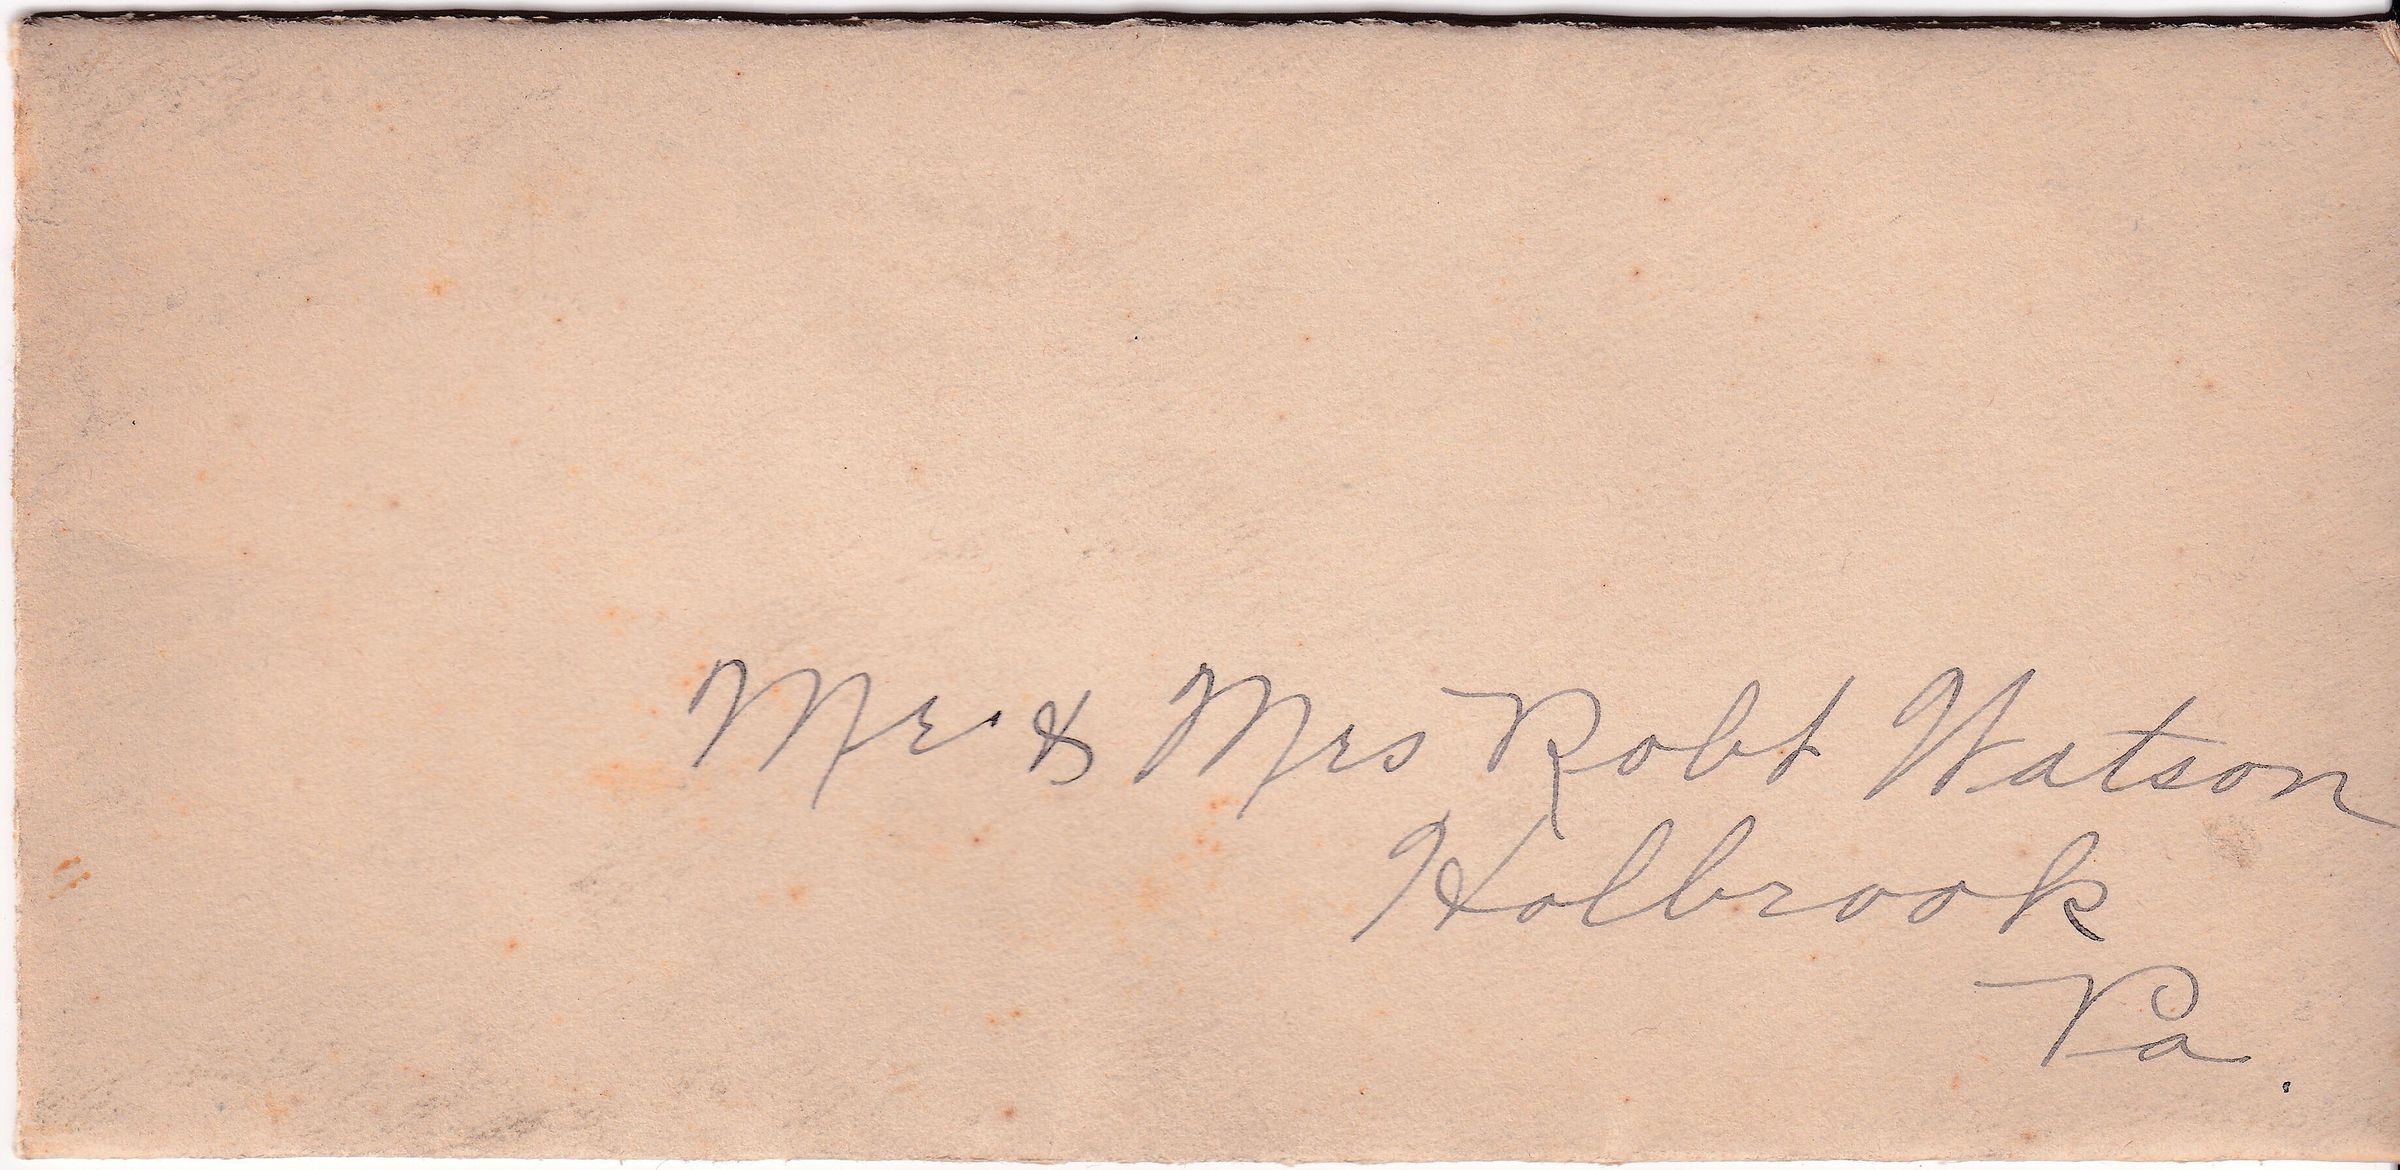 Mr. & Mrs Robt Watson
Holbrook
Pa.